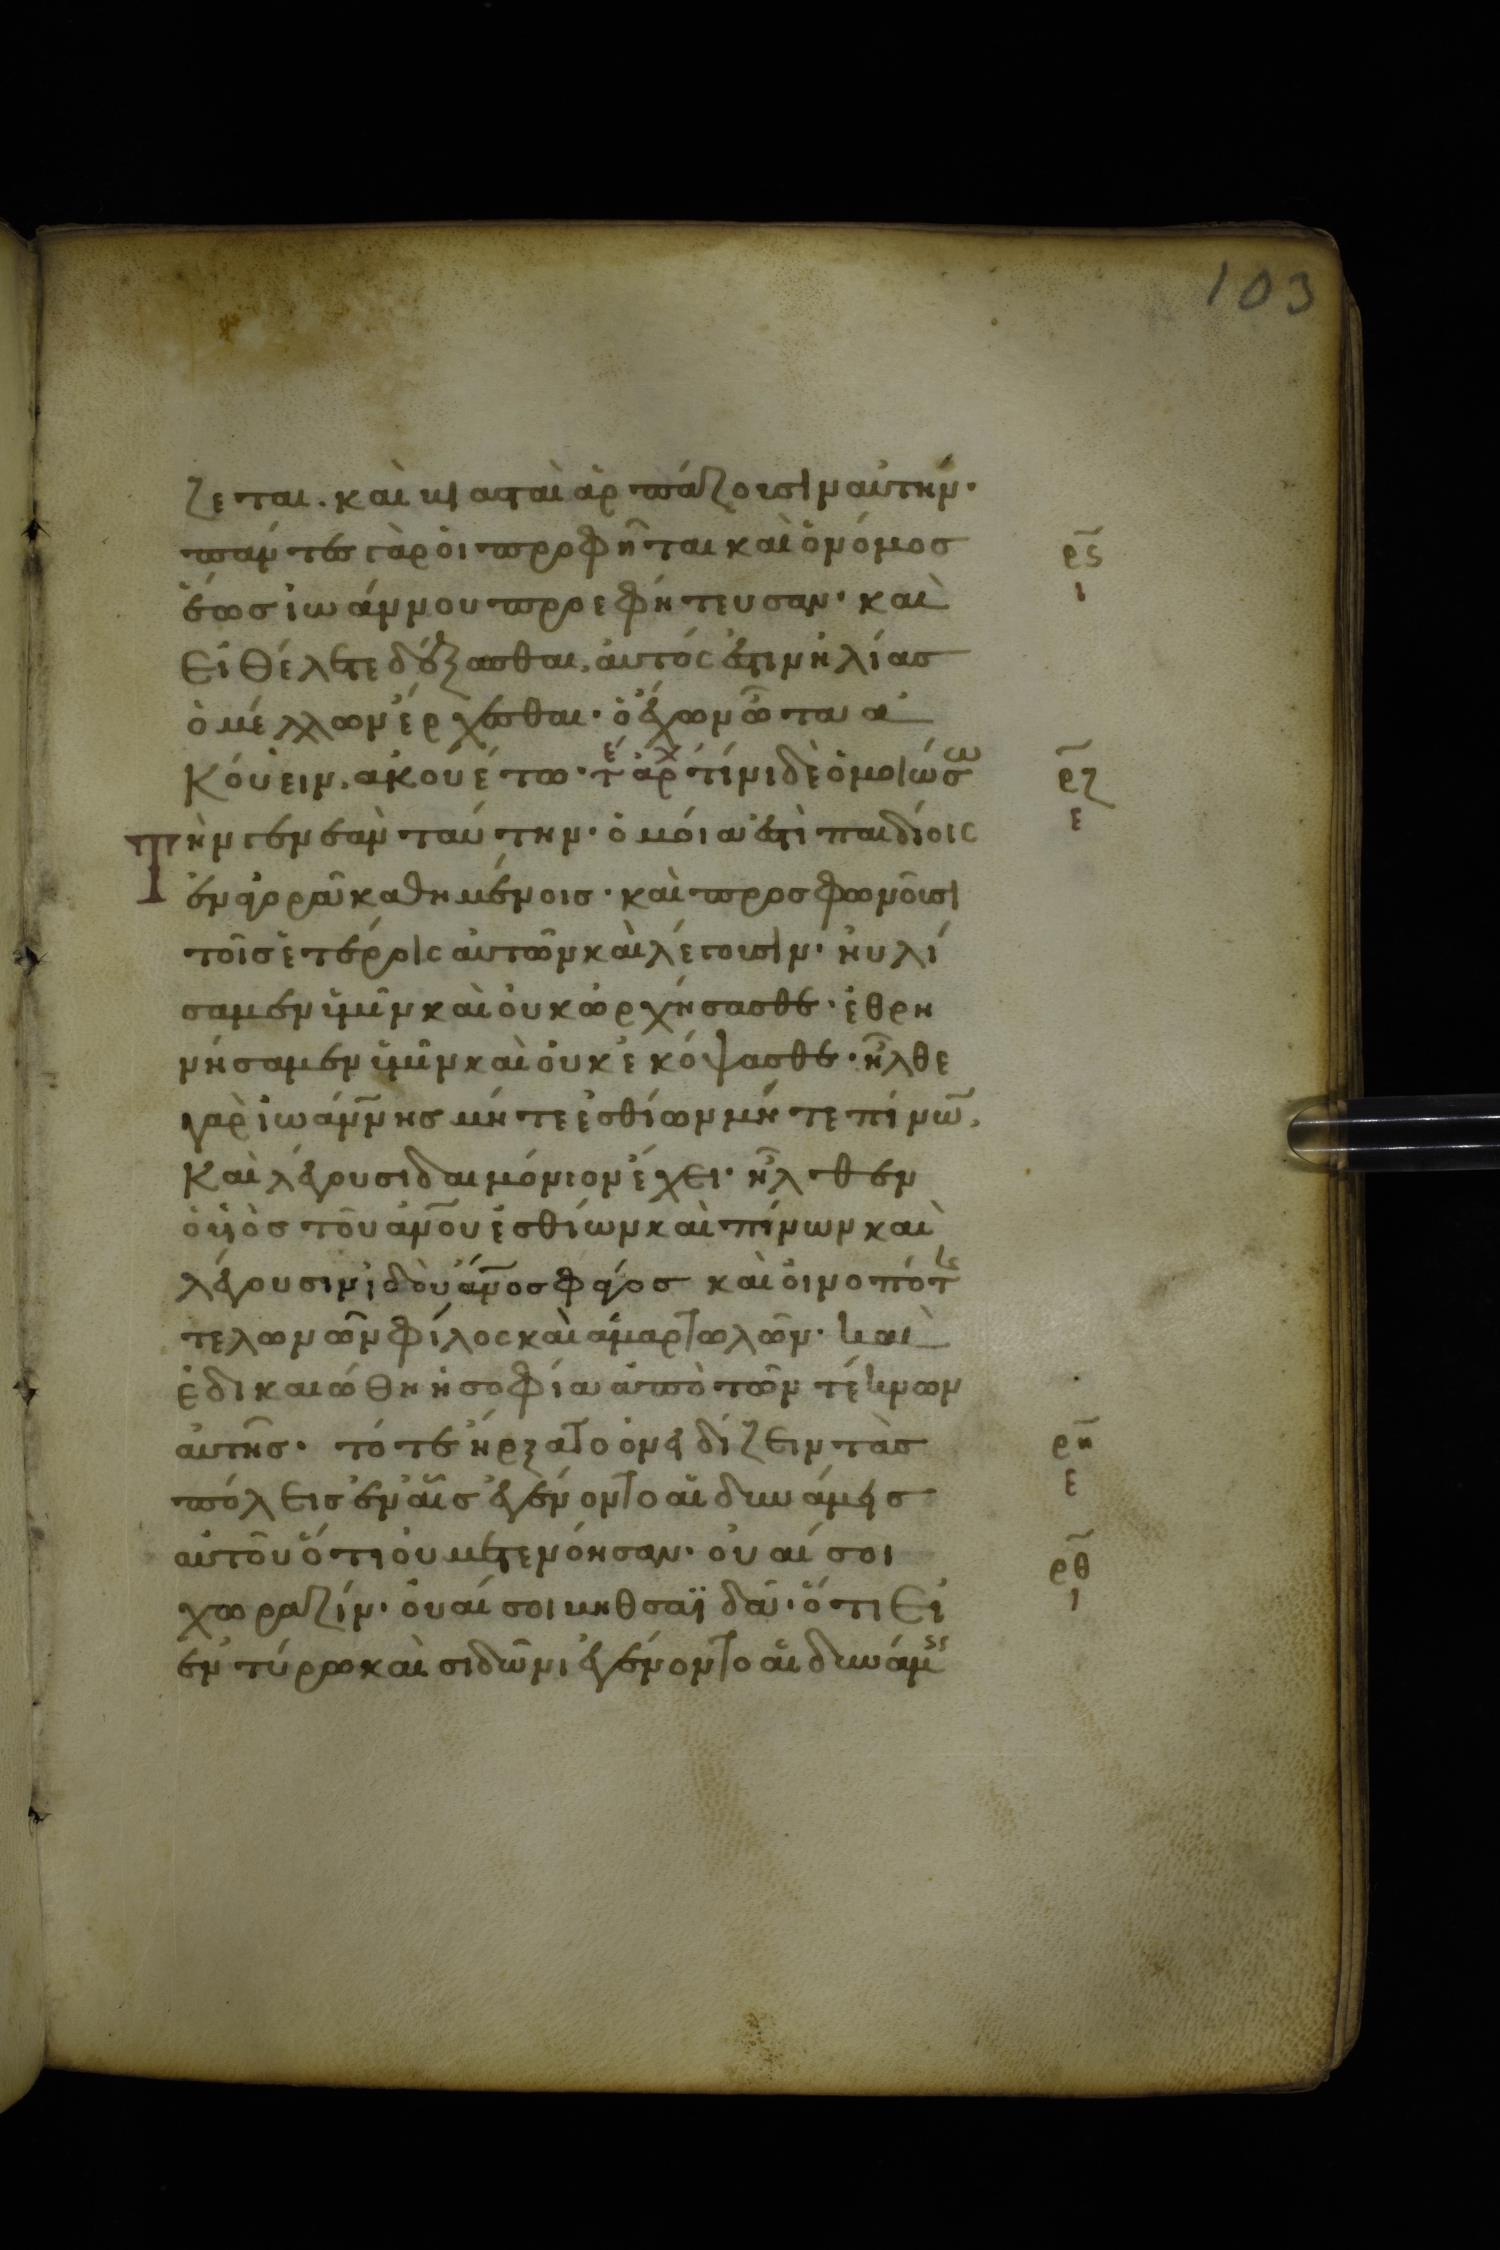 103
ζεται. καὶ βιασταὶ ἁρπάζουσιν αὐτήν·
πάντες γὰρ οἱ προφῆται καὶ ὁ νόμος
ἕως ἰωάννου προεφήτευσαν· καὶ
ρϛ
ι
εἰ θέλετε δέξασθαι, αὐτός ἐστιν ἠλίας
ὁ μέλλων ἔρχεσθαι· ὁ ἔχων ὦτα ἀ
κούειν, ακουέτω· τε αρχ τίνι δὲ ὁμοιώσω
ρζ
ε
Τὴν γενεὰν ταύτην· ὁμοία ἐστὶ παιδίοις
ἐν ἀγορᾶ καθημένοις· καὶ προσφωνοῦσι
τοῖς ἑτέροις αὐτῶν καὶ λέγουσιν· ηὐλί
σαμεν ὑμῖν καὶ οὐκ ὠρχήσασθε· ἐθρη
νήσαμεν ὑμῖν καὶ οὐκ ἐκόψασθε· ἦλθε
γαρ ἰωάννης μήτε ἐσθίων μήτε πίνων,
Καὶ λέγουσι δαιμόνιον ἔχει· ἦλθεν
ὁ υἱὸς τοῦ ἀνου ἐσθίων καὶ πίνων καὶ
λέγουσιν ἰδοὺ ἄνος φάγος καὶ οἰνοπότης
τελωνῶν φίλος καὶ ἁμαρτωλῶν· καὶ
ἐδικαιώθη ἡ σοφία ἀπὸ τῶν τέκνων
αὐτῆς· τότε ἤρξατο ὀνειδίζειν τὰς
ρη
ε
πόλεις ἐν αἷς ἐγένοντο αἱ δυνάμεις
αὐτοῦ ὅτι οὐ μετενόησαν· οὐαί σοι
ρθ
ι
χωραζίν· οὐαί σοι βηθσαϊδά· ὅτι εἰ
ἐν τύρω καὶ σιδῶνι ἐγένοντο αἱ δυνάμεις